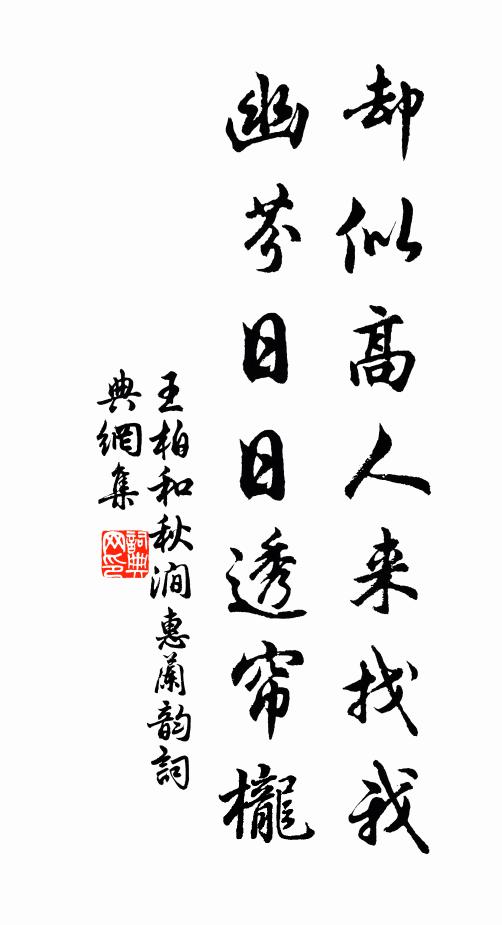 却似高人来找我
幽芬日日透帘櫳
王柏和秋澗惠蘭韵詞
典網集
詞典
网印